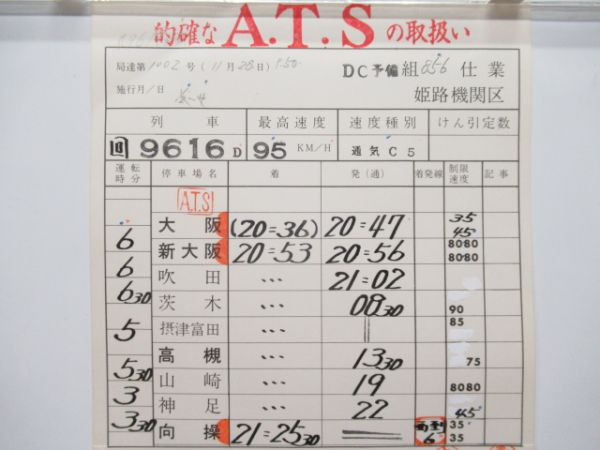 的確な A.T.S の取扱い
局達第1002号(11月28日)
DC予備組 856 仕業
施行月/日
姫路機関区
列車 最高速度 速度種別 けん引定数
回 9616D 95 KM/H 通気C5
運転時分 停車場名 着 発(通) 着発線 制限速度 記事
A.T.S
大阪 (20=36) 20=47 35 45
6 新大阪 20=53 20=56 8080 8080
6 吹田 … 21=02
6 30 茨木 … 08 30 90
摂津富田 … 〃 85
5 高槻 … 13 30 75
5 30 山崎 … 19 8080
3 神足 … 22 45
3 30 向操 21=25 30 6 35 35